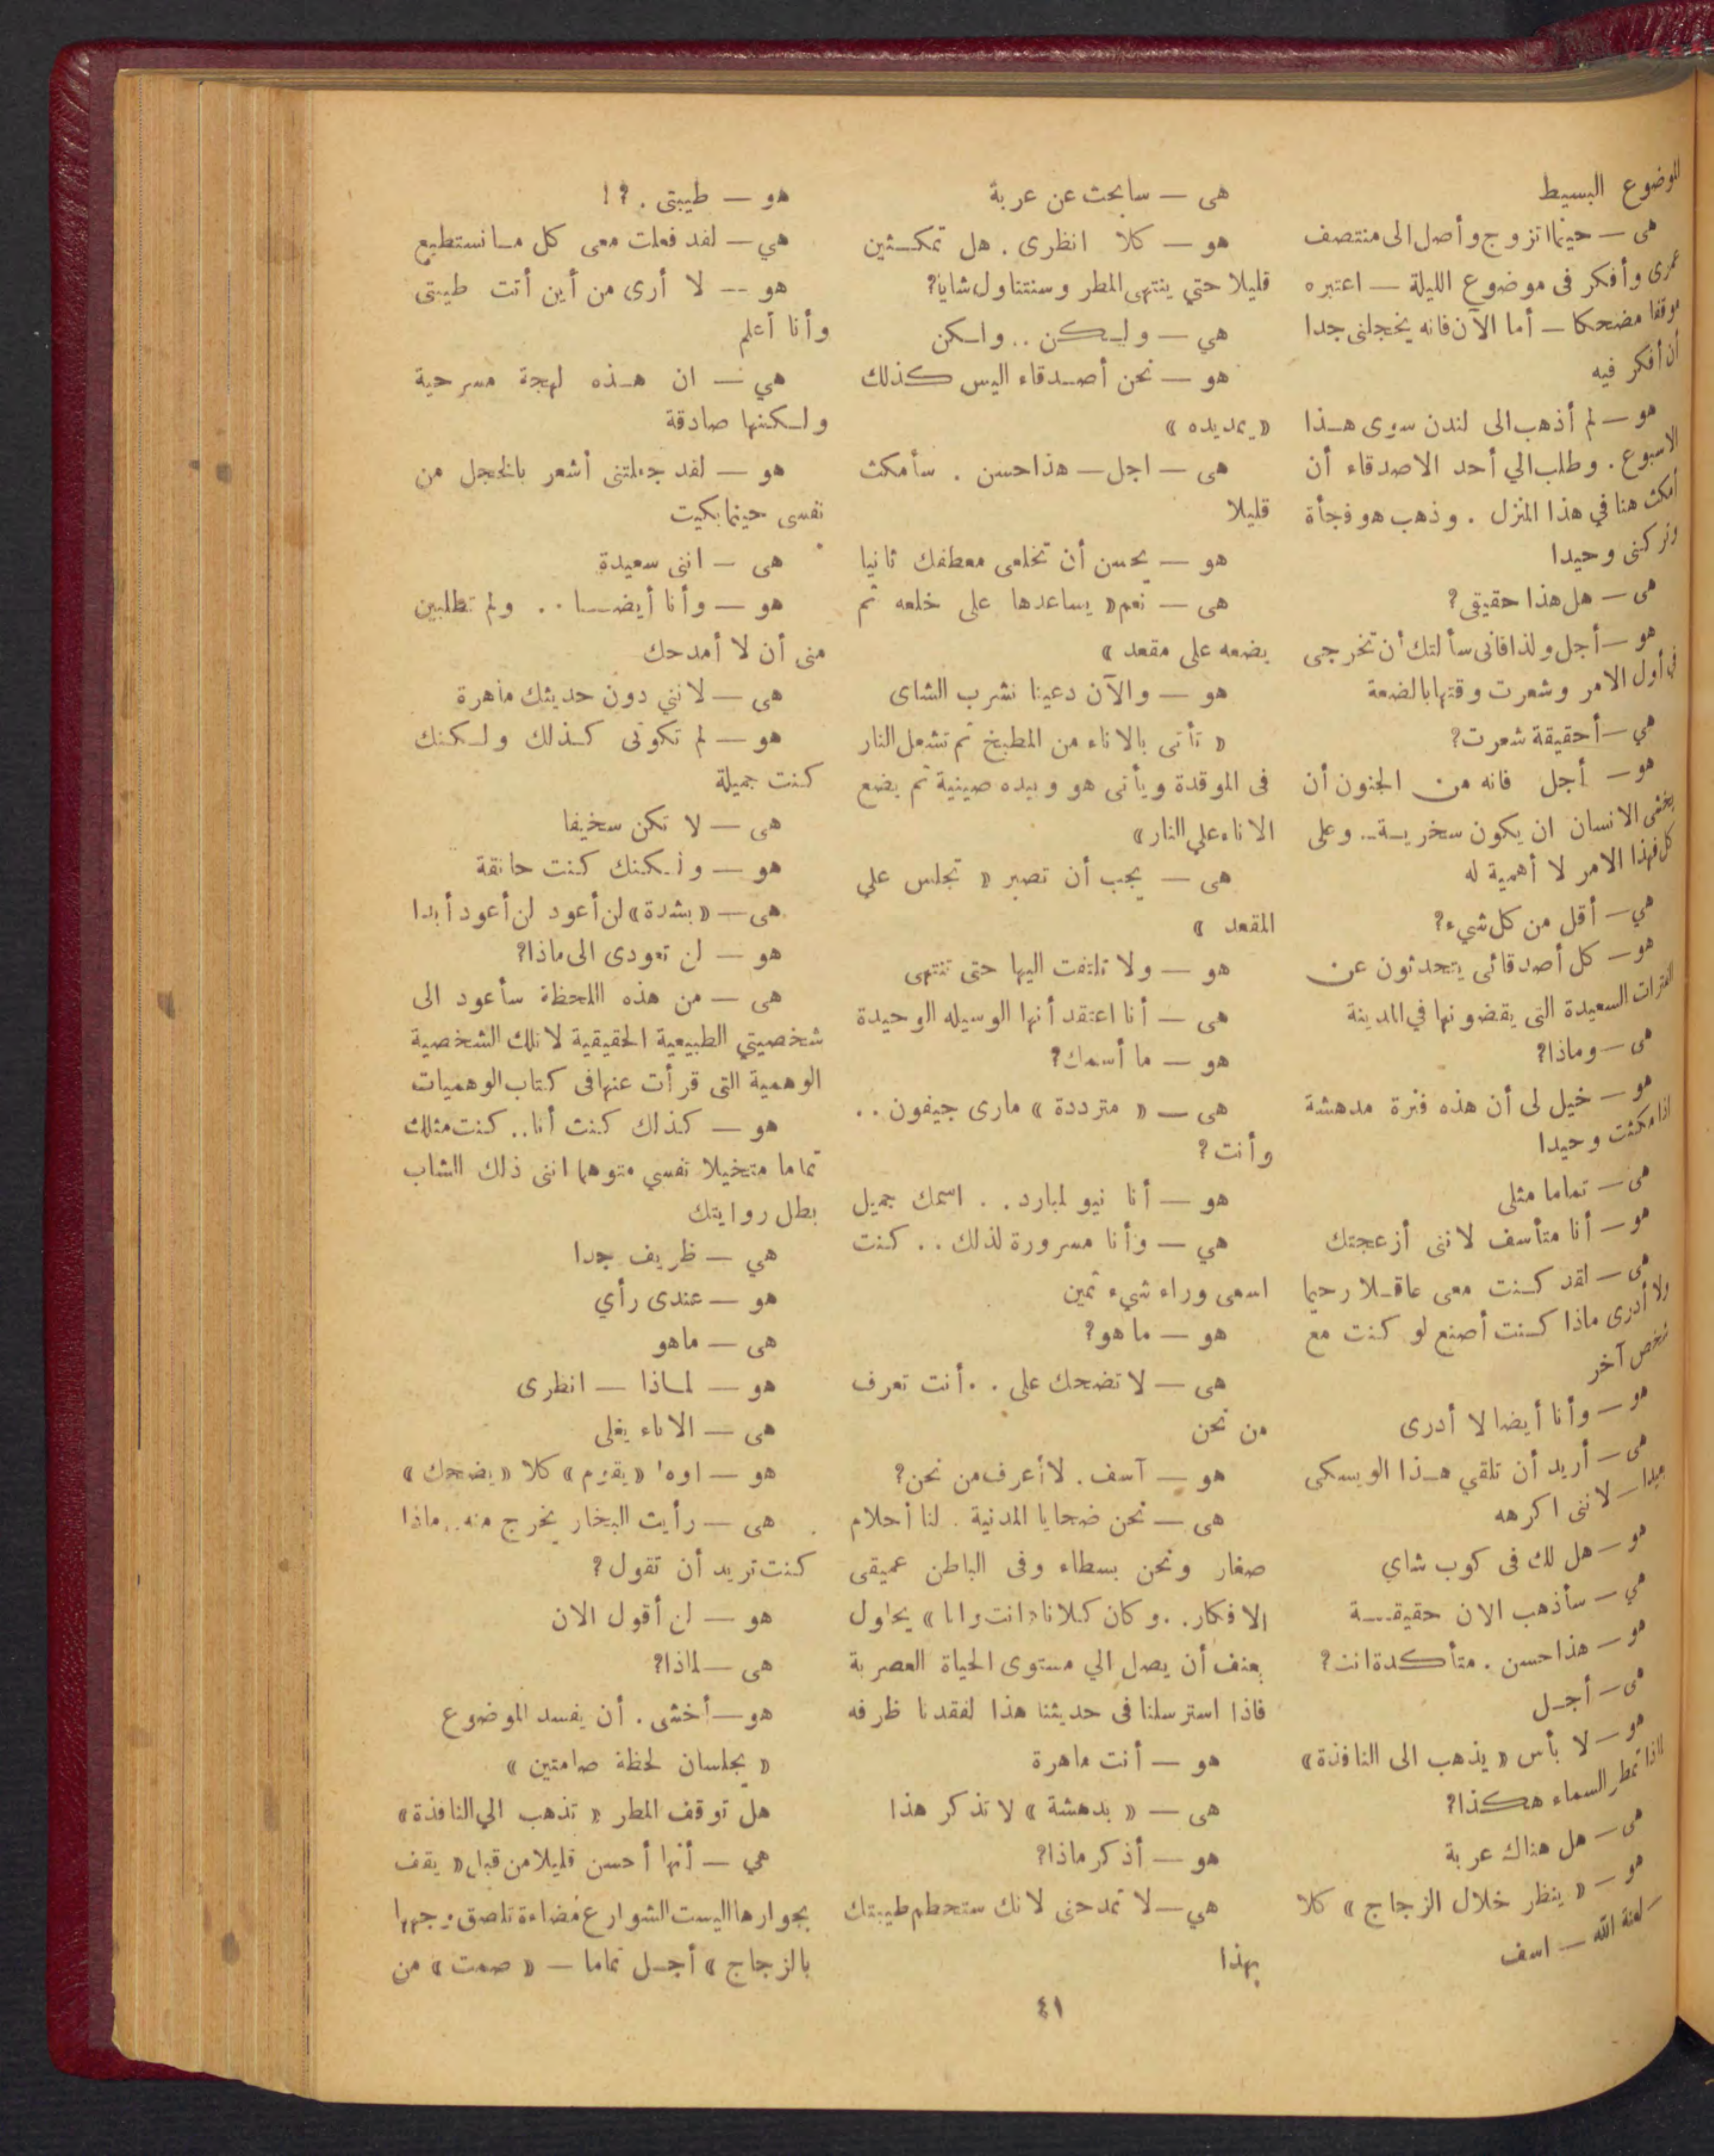 الموضوع البسيط
هى — حينما اتزوج وأصل الى منتصف
عمرى وأفكر فى موضوع الليلة — اعتبره
موقفا مضحكا — أما الآن فانه يخجلنى جدا
أن أفكر فيه
هو — لم أذهب الى لندن سوى هـذا
الاسبوع . وطلب الي أحد الاصدقاء أن
أمكث هنا في هذا المنزل . وذهب هو فجأة
وتركنى وحيدا
هى — هل هذا حقيقى ؟
هو — أجل ولذا فانى سألتك أن تخرجى
فى أول الامر وشعرت وقتها بالضعة
هي — أحقيقة شعرت؟
هو — أجل فانه من الجنون أن
يخشى الانسان ان يكون سخريـة.. وعلى
كل فهذا الامر لا أهمية له
هي — أقل من كل شيء؟
هو — كل أصدقائى يتحدثون عن
الفترات السعيدة التى يقضونها في المدينة
هى — وماذا؟
هو — خيل لى أن هذه فترة مدهشة
اذا مكثت وحيدا
هى — تماما مثلى
هو — أنا متأسف لاننى أزعجتك
هى — لقد كـنت معى عاقـلا رحيما
ولا أدرى ماذا كـنت أصنع لو كنت مع
شخص آخر
هو — وأنا أيضا لا أدرى
هى — أريد أن تلقي هـذا الويسكى
بعيدا — لاننى اكرهه
هو — هل لك فى كوب شاي
هي — سأذهب الان حقيقـــة
هو — هذا حسن . متأكدة انت ؟
هى — أجـل
هو — لا بأس « يذهب الى النافذة »
لماذا تمطر السماء هكذا؟
هى — هل هناك عربة
هو — « ينظر خلال الزجاج » كلا
— لعنة الله — اسف
هى — سابحث عن عربة
هو — كلا انظرى . هل تمكـثين
قليلا حتي ينتهى المطر وسنتناول شايا؟
هي — ولـكن .. ولـكن
هو — نحن أصـدقاء اليس كذلك
« يمد يده »
هى — اجل — هذا حسن . سأمكث
قليلا
هو — يحسن أن تخلعى معطفك ثانيا
هى — نعم « يساعدها على خلعه ثم
يضعه على مقعد »
هو — والآن دعينا نشرب الشاى
« تأتى بالاناء من المطبخ ثم تشعل النار
فى الموقدة ويأتى هو وبيده صينية ثم يضع
الاناء علي النار »
هى — يجب أن تصبر « تجلس علي
المقعد »
هو — ولا تلتفت اليها حتى تنتهى
هى — أنا اعتقد أنها الوسيله الوحيدة
هو — ما أسمك؟
هى — « مترددة » مارى جيفون ..
وأنت ؟
هو — أنا نيو لمبارد . . اسمك جميل
هي — وأنا مسرورة لذلك . . كنت
اسعى وراء شيء ثمين
هو — ما هو؟
هى — لا تضحك على . . أنت تعرف
من نحن
هو — آسف . لا أعرف من نحن؟
هى — نحن ضحايا المدنية . لنا أحلام
صغار ونحن بسطاء وفى الباطن عميقى
الافكار. . وكان كلانا « انت وانا » يحاول
بعنف أن يصل الي مستوى الحياة العصرية
فاذا استرسلنا فى حديثنا هذا لفقدنا ظرفه
هو — أنت ماهرة
هى — « بدهشة » لا تذكر هذا
هو — أذكر ماذا؟
هي — لا تمدحنى لانك ستحطم طيبتك
بهذا
هو — طيبتى . ؟ !
هي — لفد فعلت معى كل مـا نستطيع
هو -- لا أرى من أين أتت طيبتى
وأنا أعلم
هي — ان هـذه لهجة مسرحية
ولـكنها صادقة
هو — لفد جعلتنى أشعر بالخجل من
نفسى حينما بكيت
هى — اننى سعيدة
هو — وأنا أيضــا . . ولم تطلبين
منى أن لا أمدحك
هى — لاننى دون حديثك ماهرة
هو — لم تكونى كـذلك ولـكنك
كنت جميلة
هى — لا تكن سخيفا
هو — ولـكنك كنت حانقة
هى — « بشدة » لن أعود لن أعود أبدا
هو — لن تعودى الى ماذا؟
هى — من هذه اللحظة سأعود الى
شخصيتي الطبيعية الحقيقية لا تلك الشخصية
الوهمية التى قرأت عنها فى كتاب الوهميات
هو — كذلك كنت أنا.. كنت مثلك
تماما متخيلا نفسي متوهما اننى ذلك الشاب
بطل روايتك
هي — ظريف جدا
هو — عندى رأي
هى — ماهو
هو — لمـاذا — انظرى
هى — الاناء يغلى
هو — اوه! « يقوم » كلا « يضحك »
هى — رأيت البخار يخرج منه.. ماذا
كنت تريد أن تقول ؟
هو — لن أقول الان
هى — لماذا؟
هو — أخشى . أن يفسد الموضوع
« يجلسان لحظة صامتين »
هل توقف المطر « تذهب الي النافذة »
هي — أنها أحسن قليلا من قبل « يقف
بجوارها اليست الشوارع مضاءة تلصق وجهها
بالزجاج » أجـل تماما — « صمت » من
٤١